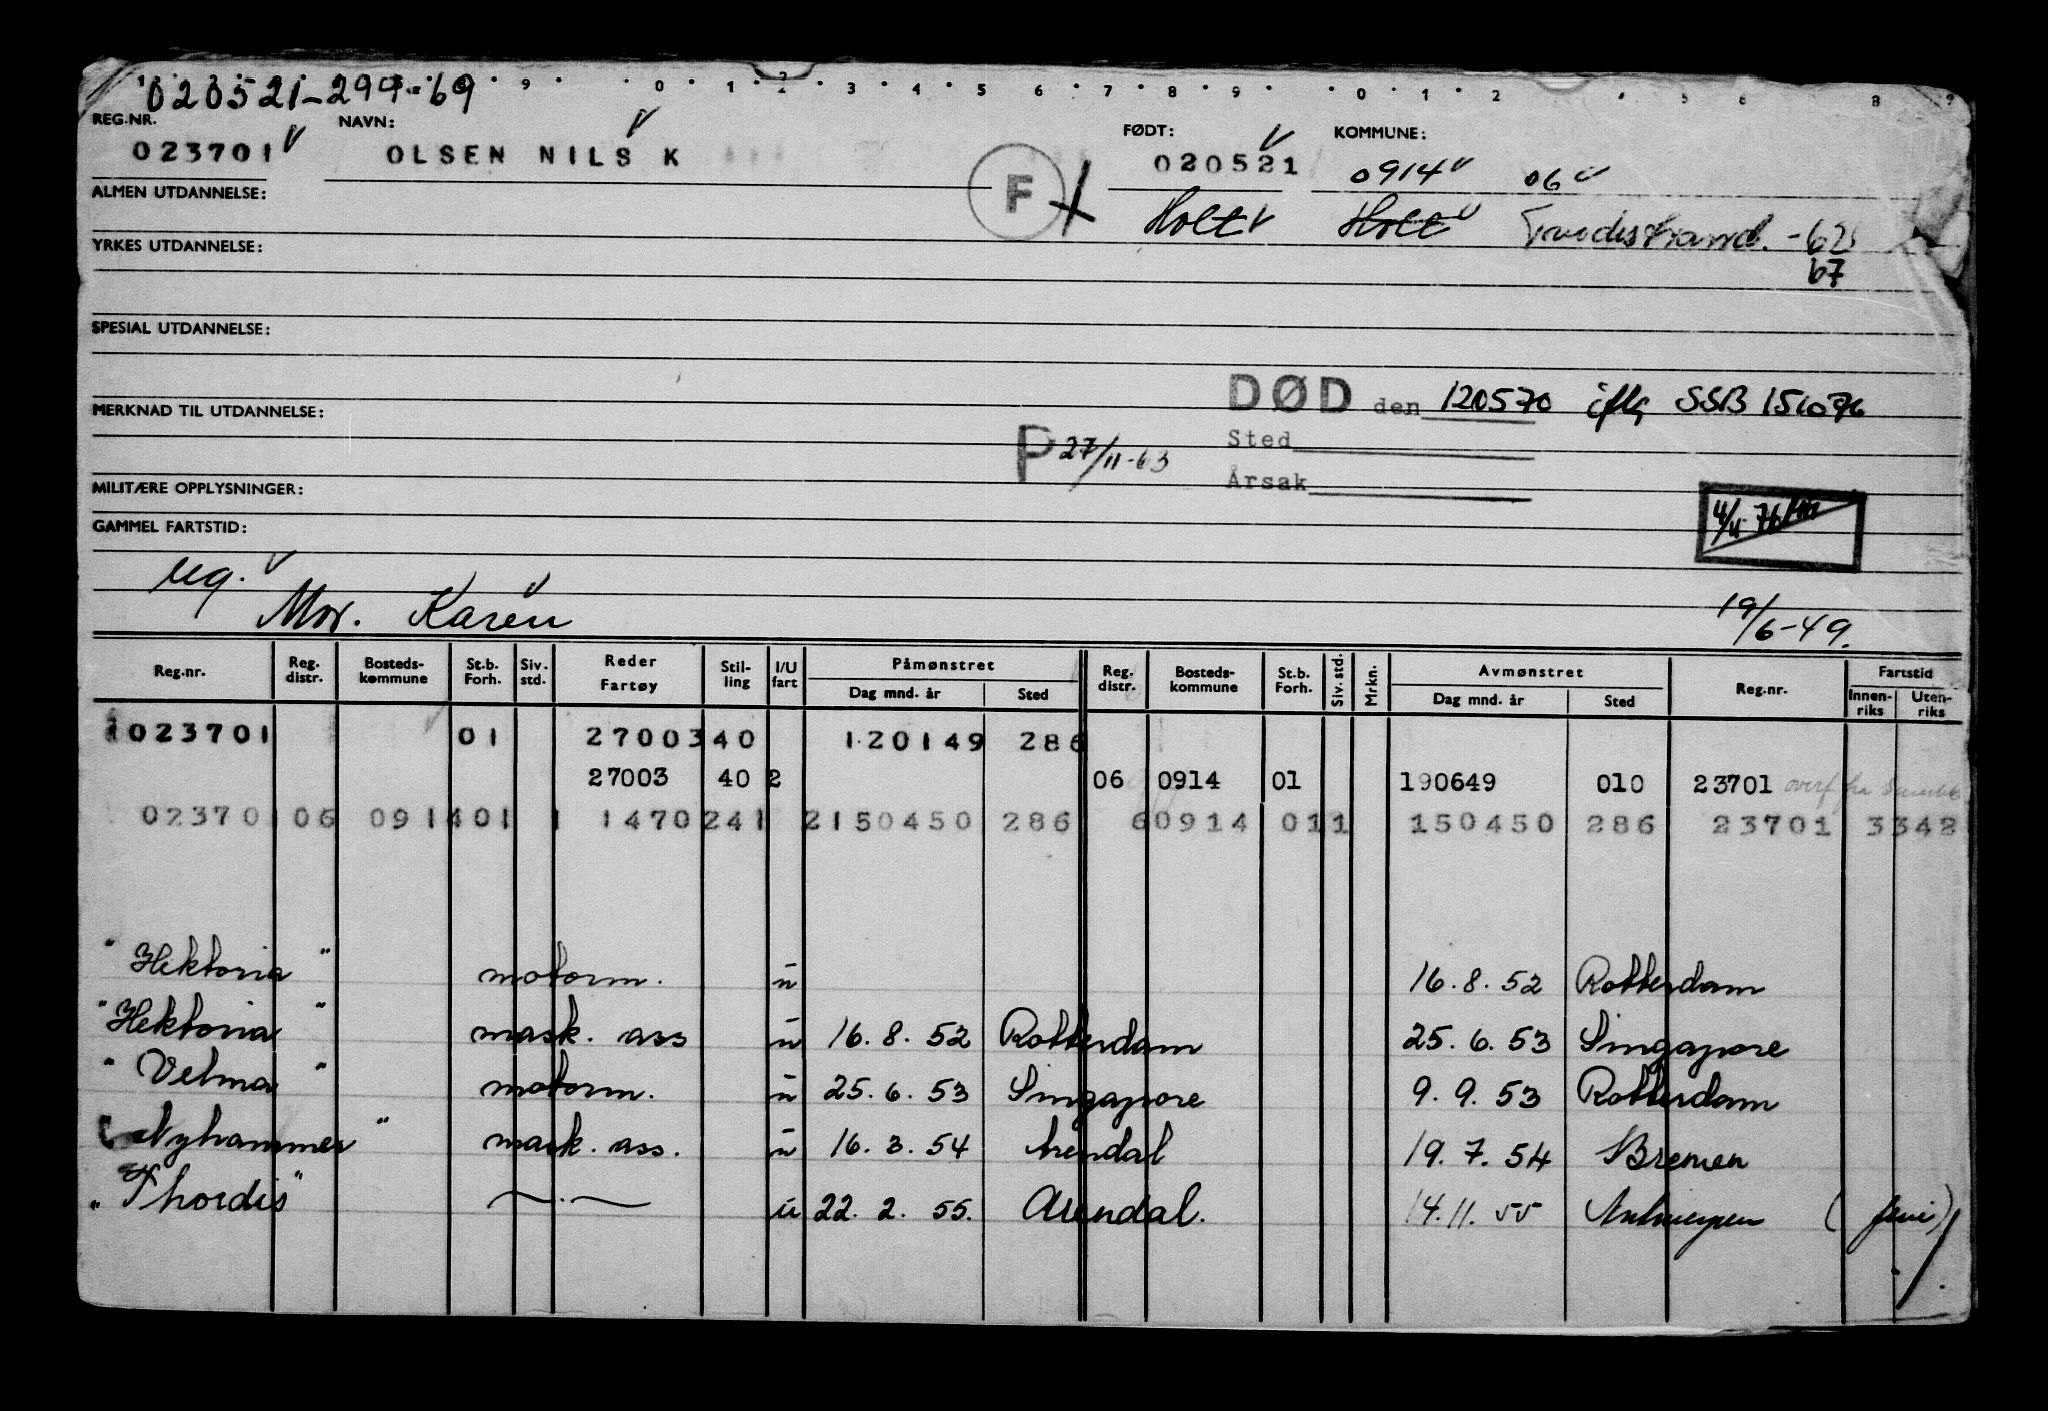 020521-299-69
9 0 1 2 3 4 5 6 7 8 9 0 1 2 5 6 8 9
REG.NR. NAVN: FØDT: KOMMUNE:
023701 OLSEN NILS K F 020521 0914 06
ALMEN UTDANNELSE: Holt Holt Tvedestrand. -62
67
YRKES UTDANNELSE:
SPESIAL UTDANNELSE:
DØD den 120570 iflg SSB 151076
MERKNAD TIL UTDANNELSE:
P 27/11-63 Sted
Årsak
MILITÆRE OPPLYSNINGER:
4/11 76
GAMMEL FARTSTID:
ug.
Mor. Karen 19/6-49.
Reg.nr. Reg. distr. Bosteds-kommune St.b. Forh. Siv. std. Reder Fartøy Stil-ling I/U fart Påmønstret Dag mnd. år Sted Reg. distr. Bosteds-kommune St.b. Forh. Siv. std. Mrkn. Avmønstret Dag mnd. år Sted Reg.nr. Fartstid Innen-riks Uten-riks
023701 01 27003 40 120149 286
27003 40 2 06 0914 01 190649 010 23701 overf fra
02370 06 091401 1 1470241 2150450 286 60914 011 150450 286 23701 3342
"Hektoria" motorm. u 16.8.52 Rotterdam
"Hektoria" mask. ass u 16.8.52 Rotterdam 25.6.53 Singapore
"Velma" motorm. u 25.6.53 Singapore 9.9.53 Rotterdam
Nyhammer" mask. ass. u 16.3.54 Arendal 19.7.54 Bremen
"Thordis" —.— u 22.2.55. Arendal. 14.11.55 Antwerpen